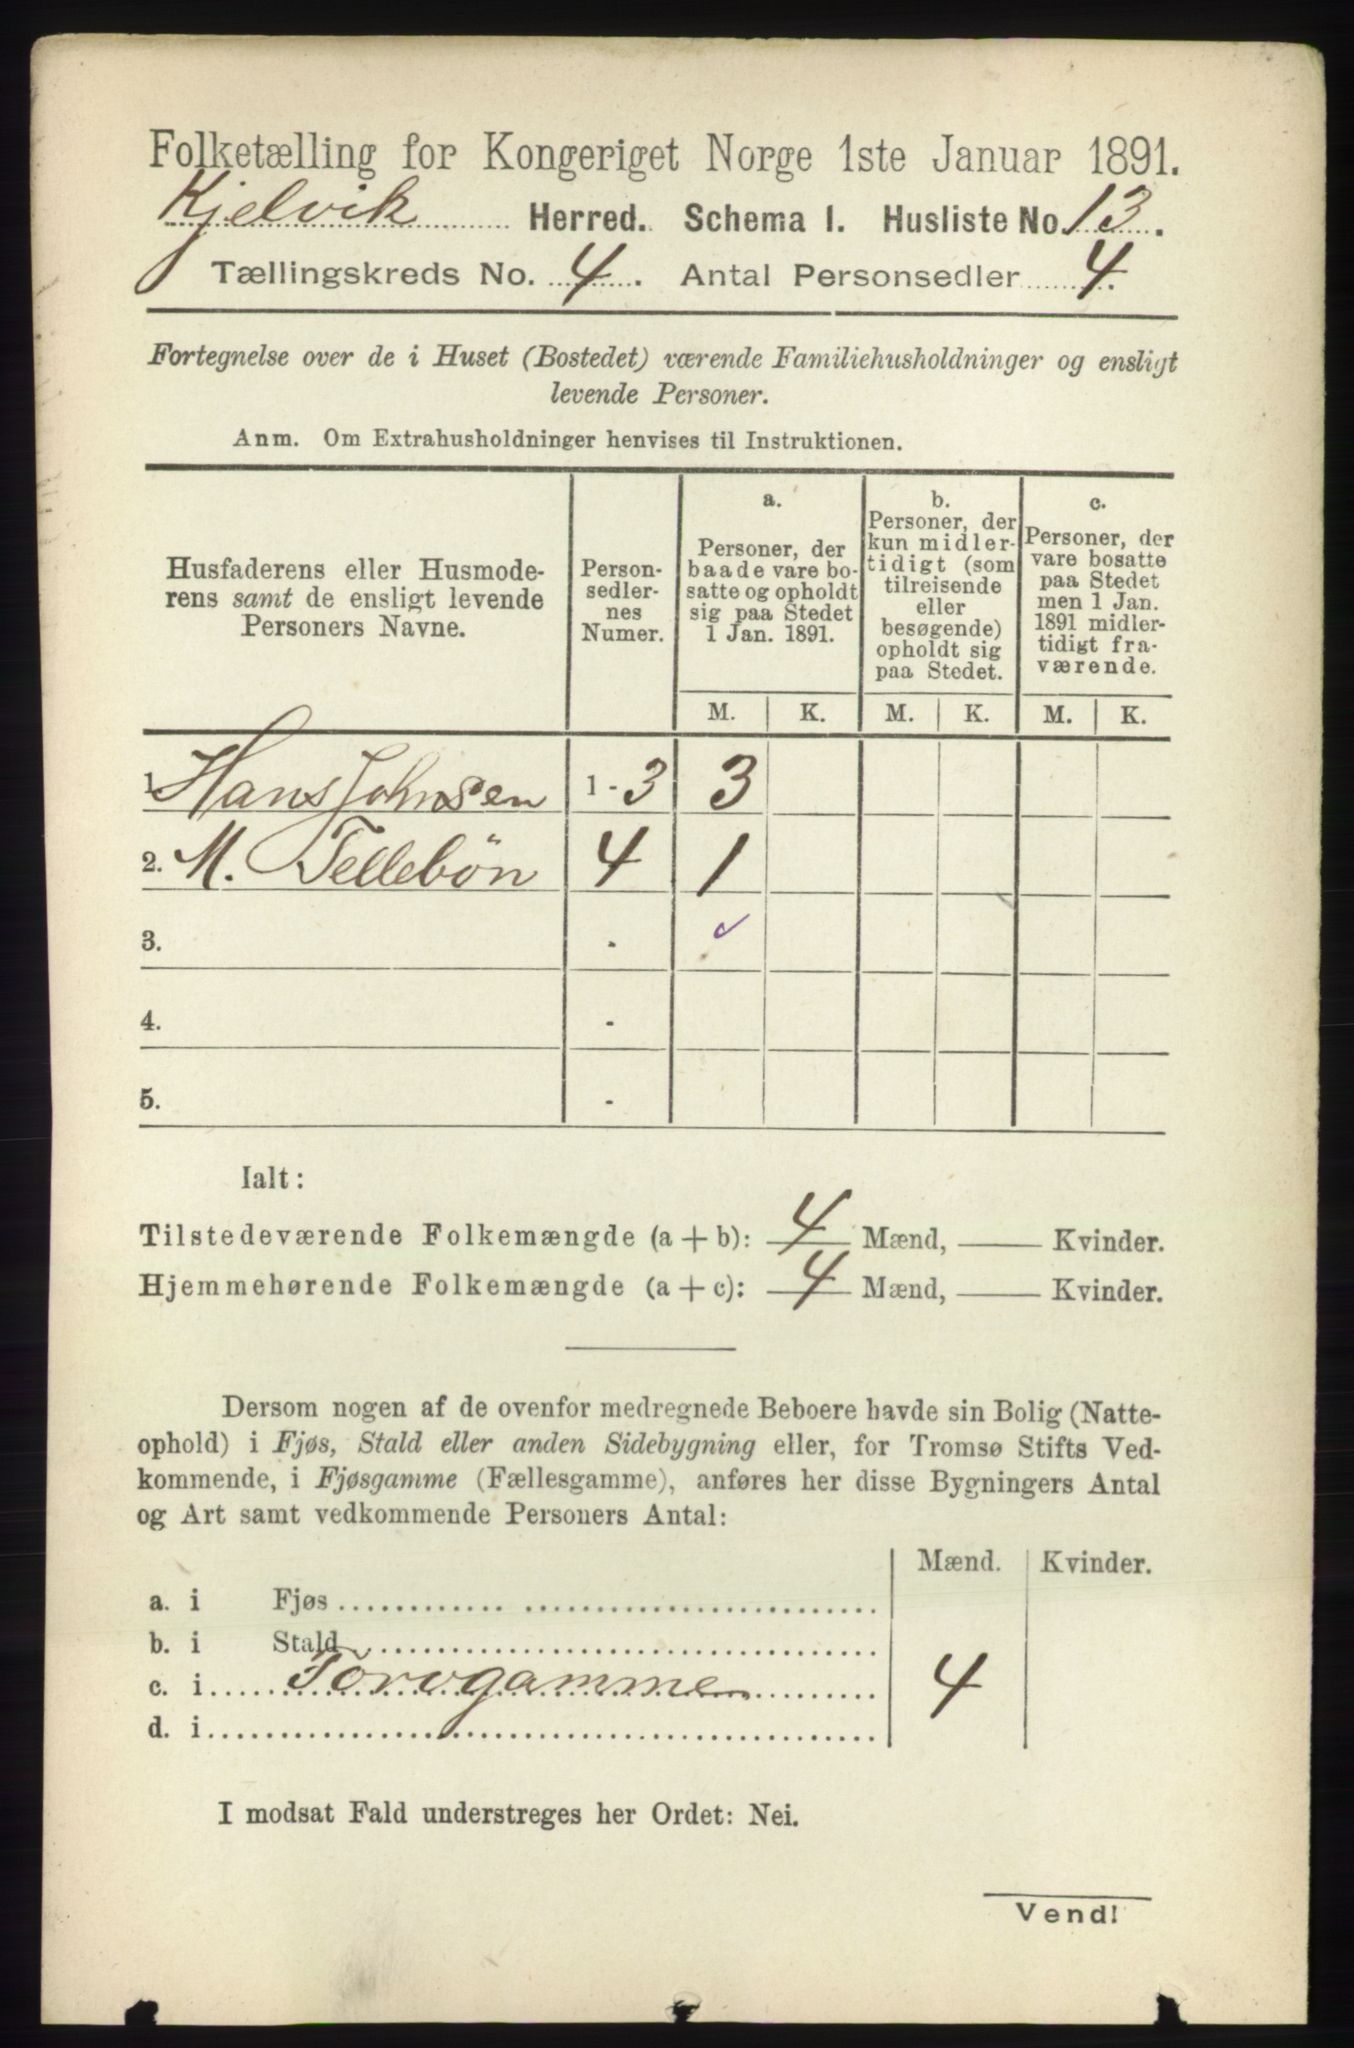 Folketælling for Kongeriget Norge 1ste Januar 1891.
Kjelvik Herred. Schema I. Husliste No. 13.
Tællingskreds No. 4. Antal Personsedler 4.
Fortegnelse over de i Huset (Bostedet) værende Familiehusholdninger og ensligt
levende Personer.
Anm. Om Extrahusholdninger henvises til Instruktionen.
Husfaderens eller Husmode-
rens samt de ensligt levende
Personers Navne.
Person-
sedler-
nes
Numer.
a.
Personer, der
baade vare bo-
satte og opholdt
sig paa Stedet
1 Jan. 1891.
b.
Personer, der
kun midler-
tidigt (som
tilreisende
eller
besøgende)
opholdt sig
paa Stedet.
c.
Personer, der
vare bosatte
paa Stedet
men 1 Jan.
1891 midler-
tidigt fra-
værende.
M. K. M. K. M. K.
1. Hans Johnsen 1 - 3 3
2. M. Tellebön 4 1
3. -
4. -
5. -
Ialt:
Tilstedeværende Folkemængde (a + b): 4 Mænd, Kvinder.
Hjemmehørende Folkemængde (a + c): 4 Mænd, Kvinder.
Dersom nogen af de ovenfor medregnede Beboere havde sin Bolig (Natte-
ophold) i Fjøs, Stald eller anden Sidebygning eller, for Tromsø Stifts Ved-
kommende, i Fjøsgamme (Fællesgamme), anføres her disse Bygningers Antal
og Art samt vedkommende Personers Antal:
Mænd. Kvinder.
a. i Fjøs
b. i Stald
c. i Torvgamme 4
d. i
I modsat Fald understreges her Ordet: Nei.
Vend!